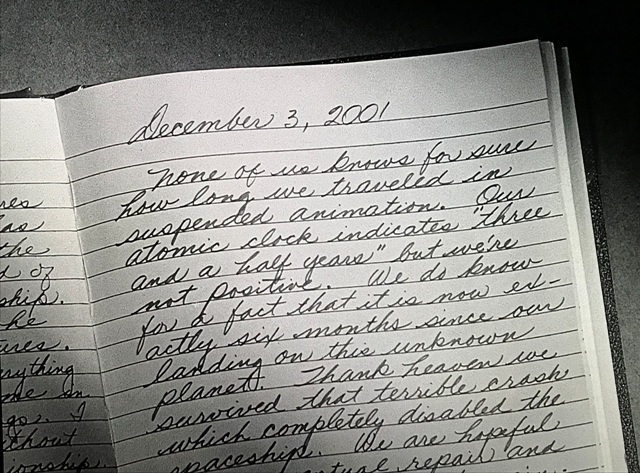 res
as
the
d of
ship.
he
ures.
rything
me in
go. I
thout
ionship.
December 3, 2001
None of us knows for sure
how long we traveled in
suspended animation. Our
atomic clock indicates "three
and a half years" but we're
not positive. We do know
for a fact that it is now ex-
actly six months since our
landing on this unknown
planet. Thank heaven we
survived that terrible crash
which completely disabled the
spaceship. We are hopeful
repair and